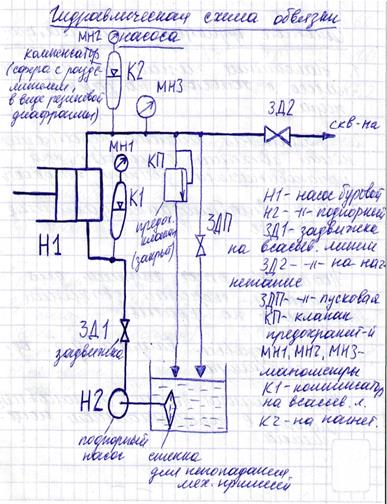 Гидравлическая схема обвязки
насоса
МН2
компенсатор
(сфера с разде-
лителем,
в виде резиновой
диафрагмы)
К2
МН3
ЗД2
скв-на
МН1
КП
К1
предох.
клапан
(закрыт)
ЗДП
Н1
ЗД1
задвижка
Н2
подпорный
насос
сетка
для непопадания
мех. примесей
Н1- насос буровой
Н2 -//- подпорный
ЗД1- задвижка
на всасыв. линии
ЗД2- -//- на наг-
нетание
ЗДП- -//- пусковая
КП- клапан
предохранит-й
МН1, МН2, МН3-
манометры
К1- компенсатор
на всасыв. л.
К2- на нагнет.